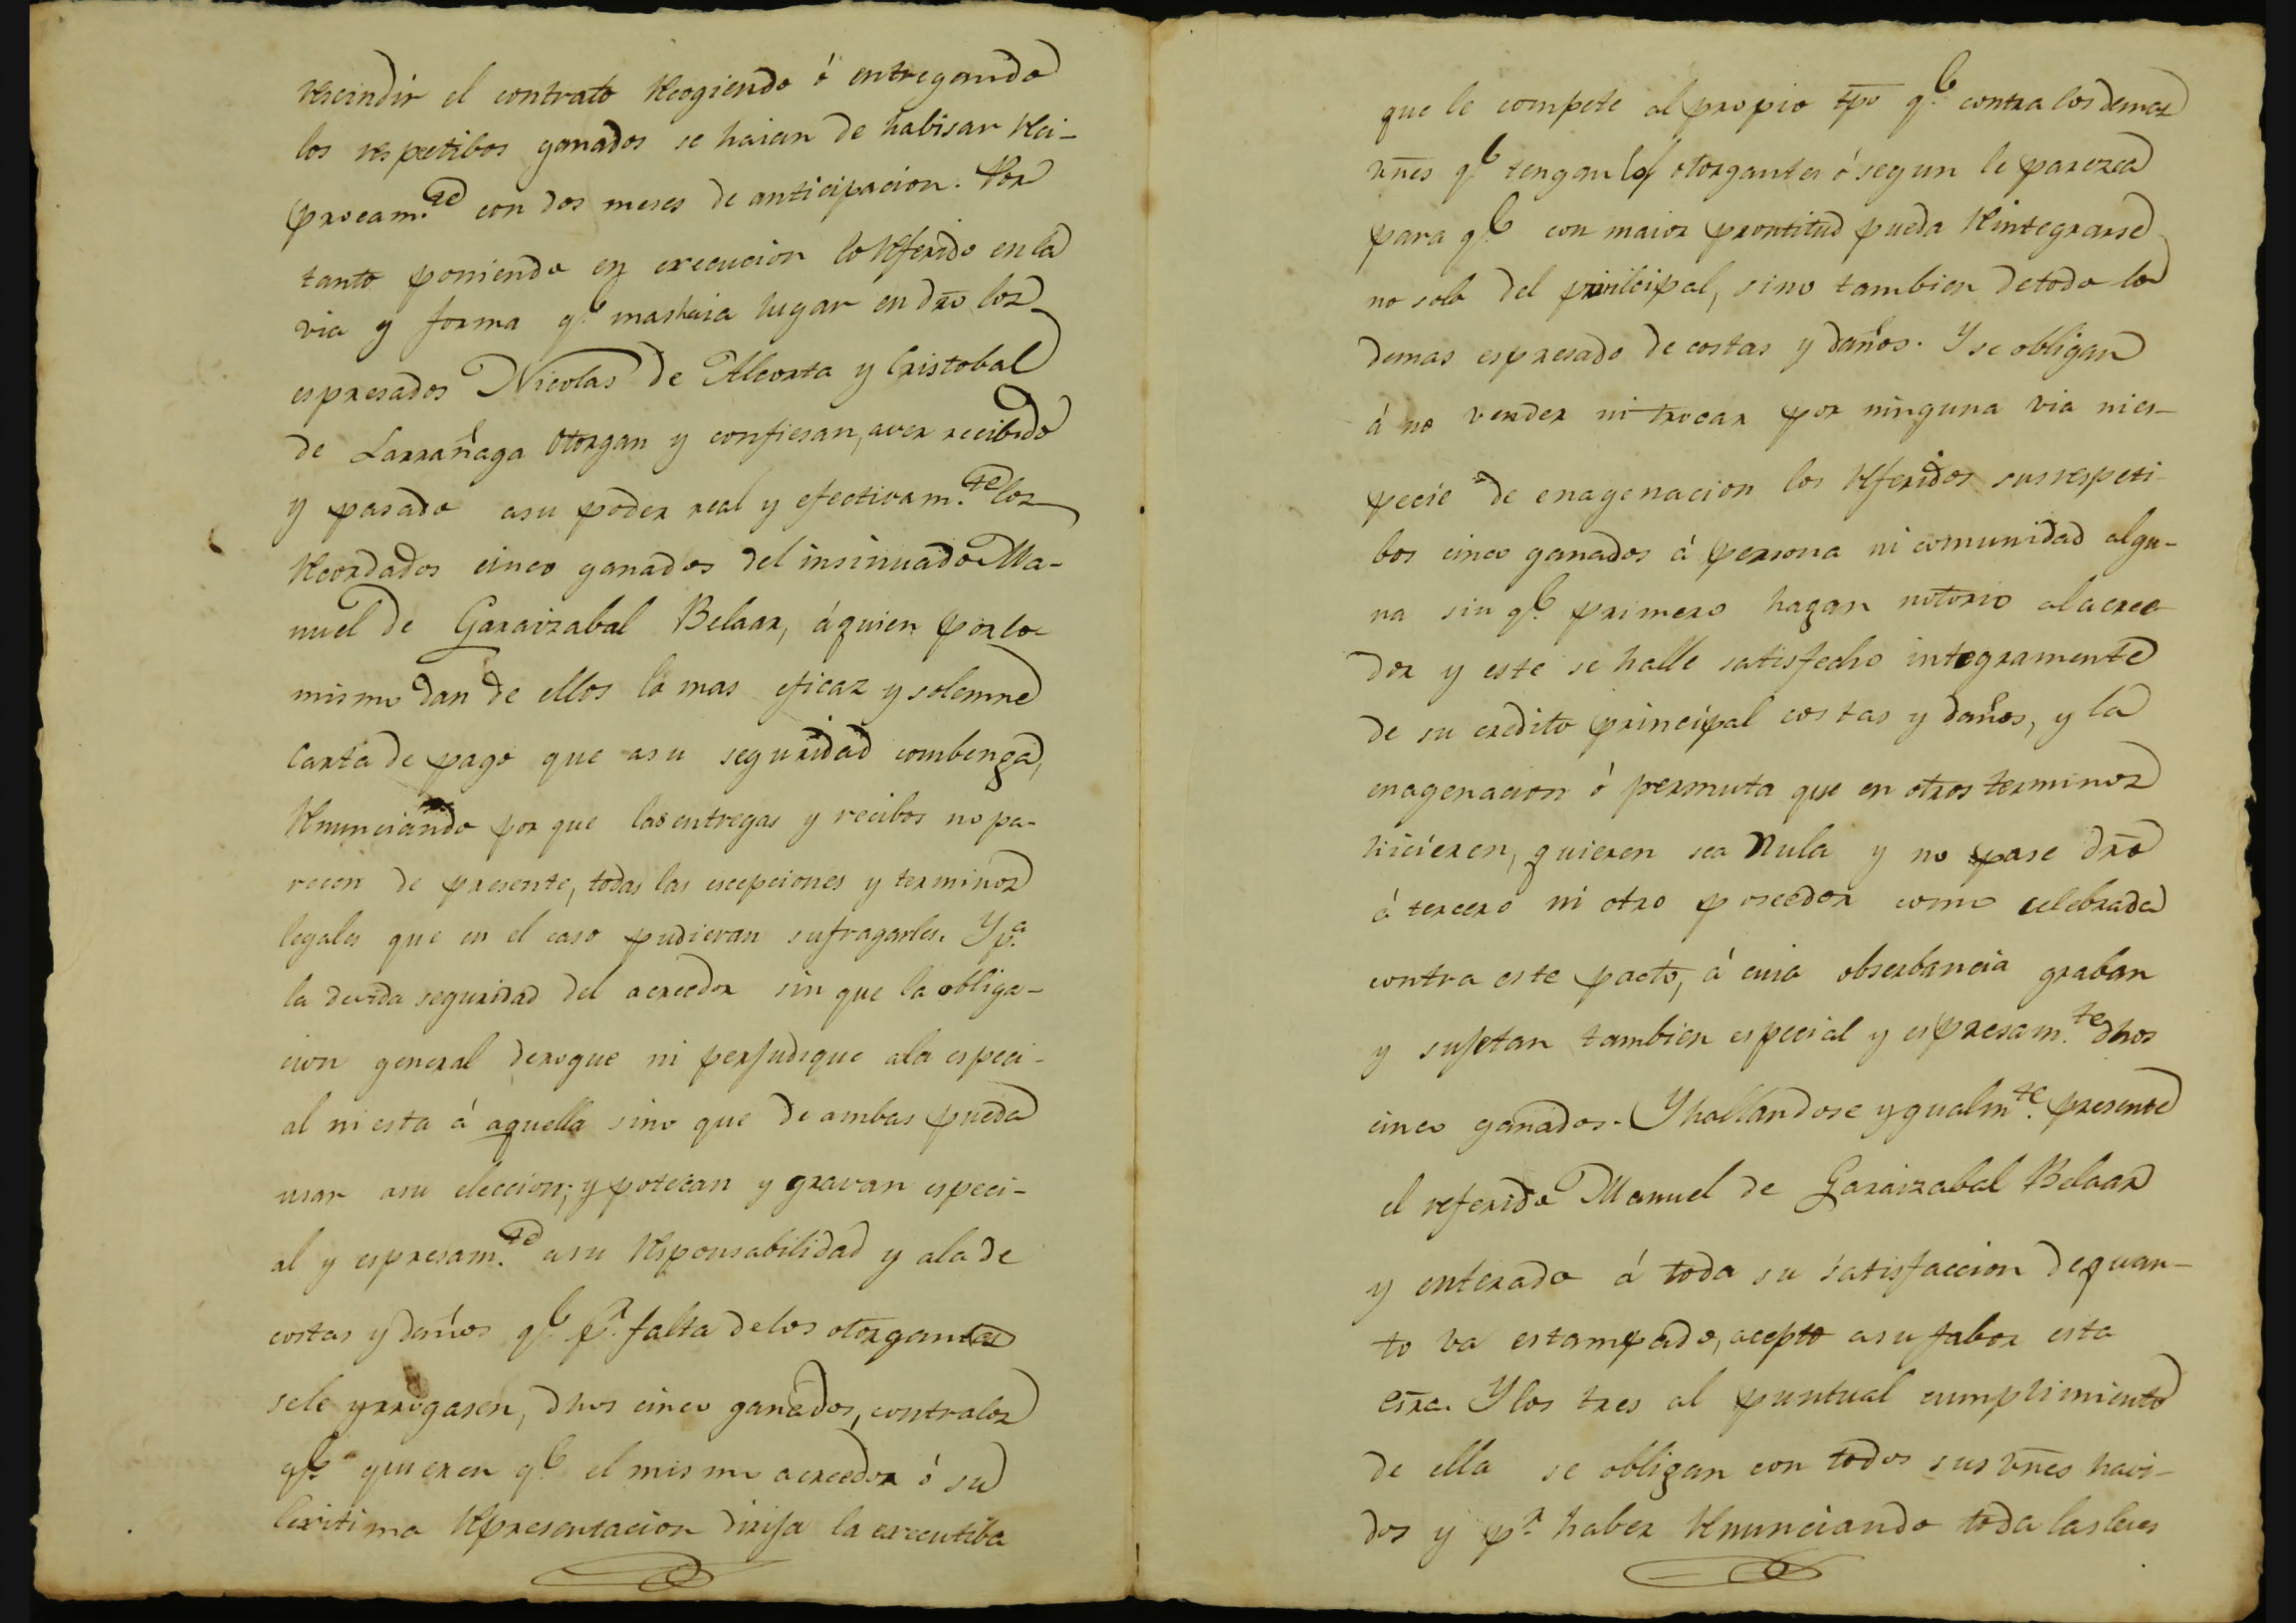 rescindir el contrato recogiendo ó entregando
los respectibos ganados se haian de habisar reci-
procam.te con dos meses de anticipacion. Por
tanto poniendo en execucion lo referido en la
via y forma q.e mas haia lugar en dro los
espresados Nicolas de Alcorta y Cristobal
de Larrañaga otorgan y confiesan, aver recibido
y pasado asu poder real y efectivam.te los
recordados cinco ganados del insinuado Ma-
nuel de Garaizabal Belaar, á quien por lo
mismo dan de ellos la mas eficaz y solemne
Carta de pago que asu seguridad combenga,
renunciando por que las entregas y recibos no pa-
recen de presente, todas las escepciones y terminos
legales que en el caso pudieran sufragarles. Y p.a
la devida seguridad del acreedor sin que la obliga-
cion general derogue ni perjudique ala especi-
al ni esta á aquella sino que de ambas pueda
usar asu eleccion; ypotecan y gravan especi-
al y espresam.te asu responsabilidad y ala de
costas y daños q.e p.r falta delos otorgantes
sele yrrogasen, dhos cinco ganados, contra los
q.e quieren q.e el mismo acreedor ó su
lexitima representacion dirija la executiba
que le compete al propio tpo q.e contra los demas
vnes q.e tengan los otorgantes ó segun le parezca
para q.e con maior prontitud pueda reintegrarse
no solo del principal, sino tambien de todo lo
demas espresado de costas y daños. Y se obligan
á no vender ni trocar por ninguna via ni es-
pecie de enagenacion los referidos sus respeti-
bos cinco ganados á persona ni comunidad algu-
na sin q.e primero hagan notorio al acree-
dor y este se halle satisfecho integramente
de su credito principal costas y daños, y la
enagenacion ó permuta que en otros terminos
hicieren, quieren sea Nula y no pase dro
á tercero ni otro poseedor como celebrada
contra este pacto, á cuia obserbancia graban
y sujetan tambien especial y espresam.te dhos
cinco ganados. Y hallandose ygualm.te presente
el referido Manuel de Garaizabal Belaar
y enterado á toda su satisfaccion de quan-
to va estampado, acepto asu fabor esta
esra. Y los tres al puntual cumplimiento
de ella se obligan con todos sus vnes havi-
dos y p.r haber renunciando toda las leies